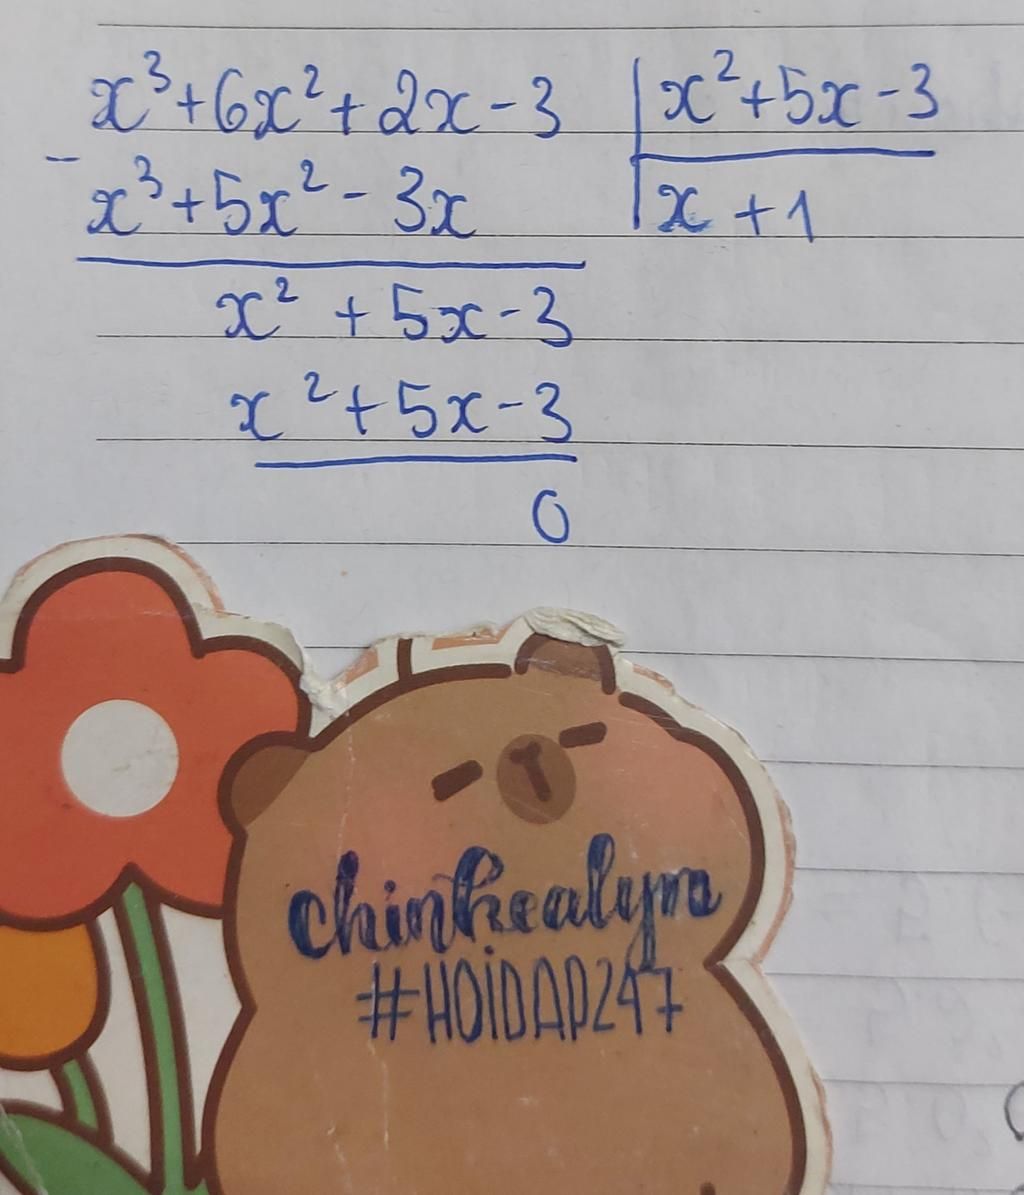 x³+6x²+2x-3 | x²+5x-3
- x³+5x²-3x | x+1
x²+5x-3
x²+5x-3
0
chinhealym
#HOIDAP247